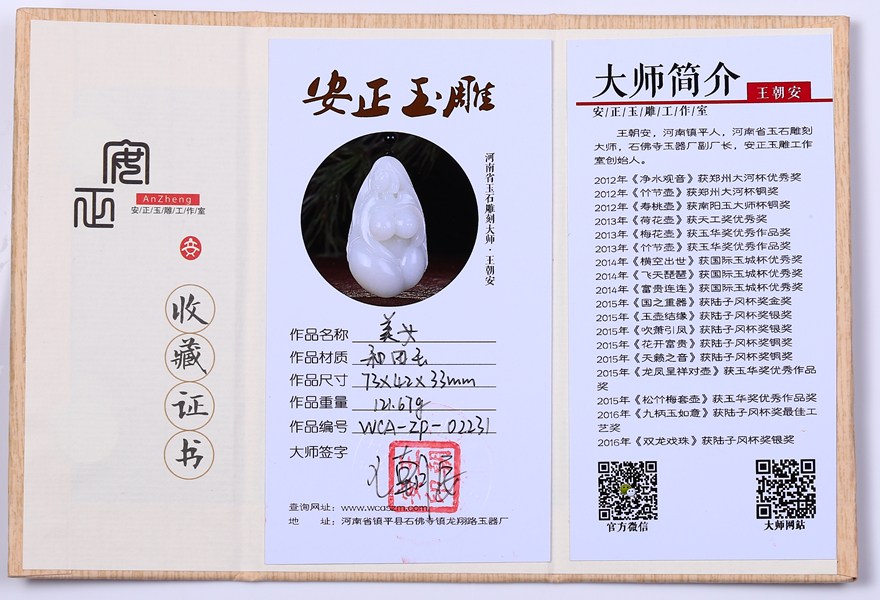 安
正
AnZheng
安/正/玉/雕/工/作/室
收
藏
证
书
安正玉雕
河南省玉石雕刻大师·王朝安
作品名称 美女
作品材质 和田玉
作品尺寸 73X42X33mm
作品重量 121.67g
作品编号 WCA-ZP-02231
大师签字
查询网址：www.wcaszm.com
地 址：河南省镇平县石佛寺镇龙翔路玉器厂
大师简介 王朝安
安/正/玉/雕/工/作/室
王朝安，河南镇平人，河南省玉石雕刻
大师，石佛寺玉器厂副厂长，安正玉雕工作
室创始人。
2012年《净水观音》获郑州大河杯优秀奖
2012年《竹节壶》获郑州大河杯铜奖
2012年《寿桃壶》获南阳玉大师杯铜奖
2013年《荷花壶》获天工奖优秀奖
2013年《梅花壶》获玉华奖优秀作品奖
2013年《竹节壶》获玉华奖优秀作品奖
2014年《横空出世》获国际玉城杯优秀奖
2014年《飞天琵琶》获国际玉城杯优秀奖
2014年《富贵连连》获国际玉城杯优秀奖
2015年《国之重器》获陆子冈杯奖金奖
2015年《玉壶结缘》获陆子冈杯奖银奖
2015年《吹萧引凤》获陆子冈杯奖银奖
2015年《花开富贵》获陆子冈杯奖铜奖
2015年《天籁之音》获陆子冈杯奖铜奖
2015年《龙凤呈祥对壶》获玉华奖优秀作品
奖
2015年《松竹梅套壶》获玉华奖优秀作品奖
2016年《九柄玉如意》获陆子冈杯奖最佳工
艺奖
2016年《双龙戏珠》获陆子冈杯奖银奖
官方微信
大师网站